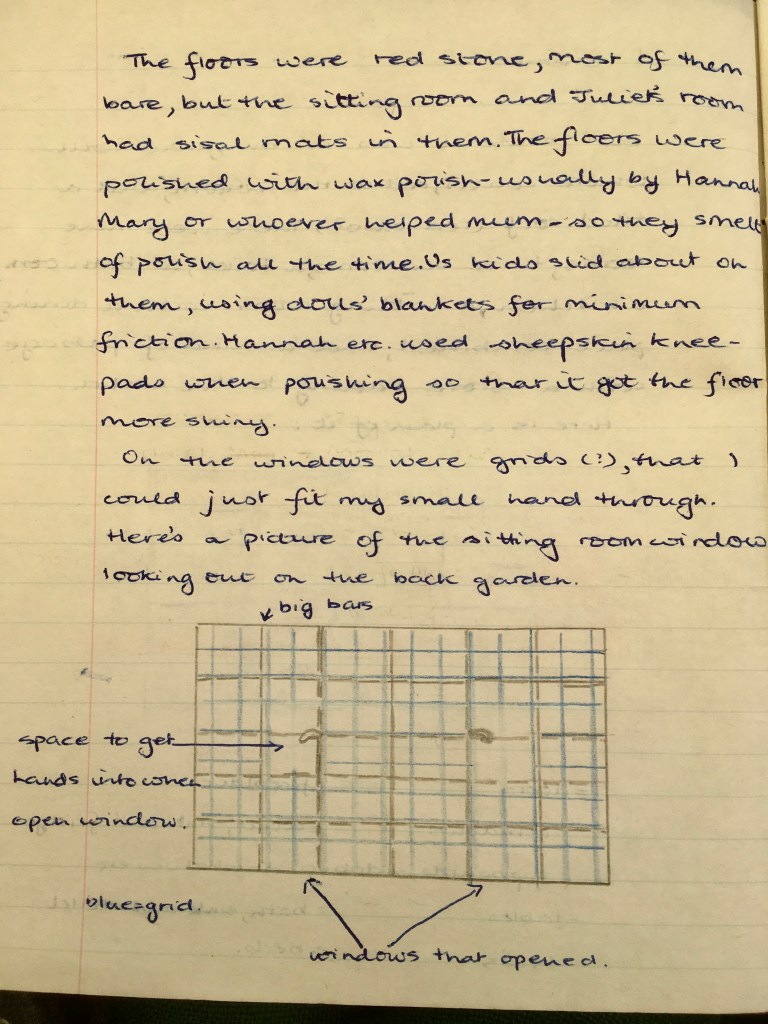 The floors were red stone, most of them
bare, but the sitting room and Juliet's room
had sisal mats in them. The floors were
polished with wax polish-usually by Hannah
Mary or whoever helped mum-so they smelt
of polish all the time. Us kids slid about on
them, using dolls' blankets for minimum
friction. Hannah etc. used sheepskin knee-
pads when polishing so that it got the floor
more shiny.
On the windows were grids (?), that I
could just fit my small hand through.
Here's a picture of the sitting room window
looking out on the back garden.
big bars
space to get
hands into when
open window.
blue=grid.
windows that opened.